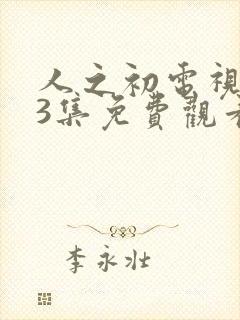 人之初電視
3集免費觀看
李永壯